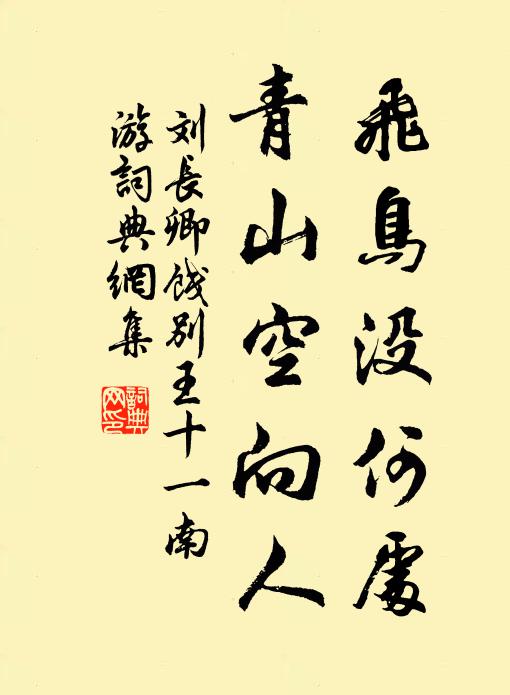 飛鳥没何處
青山空向人
刘長卿餞别王十一南
游詞典網集
詞典
网印